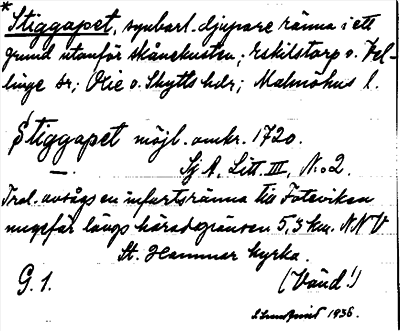 * Stiggapet, synbart. djupare ränna i ett
grund utanför skånekusten; Eskilstorp o. Vel-
linge sr; Oxie o. Skytts hdr; Malmöhus l.
Stiggapet möjl. omkr. 1720.
— Sj A, Litt. III, No 2.
Trol. avsågs en infartsränna till Foteviken
ungefär längs häradsgränsen 5,3 km. NNV
St. Hammar kyrka.
G. 1. (Vänd!)
1936.